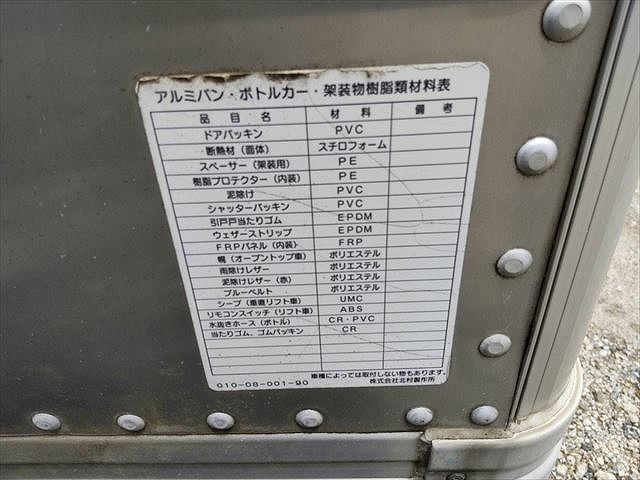 アルミバン・ボトルカー・架装物樹脂類材料表
品目名 材料 備考
ドアパッキン PVC
断熱材（面体） スチロフォーム
スペーサー（架装用） PE
樹脂プロテクター（内装） PE
泥除け PVC
シャッターパッキン PVC
引戸戸当たりゴム EPDM
ウェザーストリップ EPDM
FRPパネル（内装） FRP
幌（オープントップ車） ポリエステル
雨除けレザー ポリエステル
泥除けレザー（赤） ポリエステル
ブルーベルト ポリエステル
シーブ（垂直リフト車） UMC
リモコンスイッチ（リフト車） ABS
水抜きホース（ボトル） CR・PVC
当たりゴム、ゴムパッキン CR
車種によっては取付しない物もあります。
010-08-001-90 株式会社北村製作所